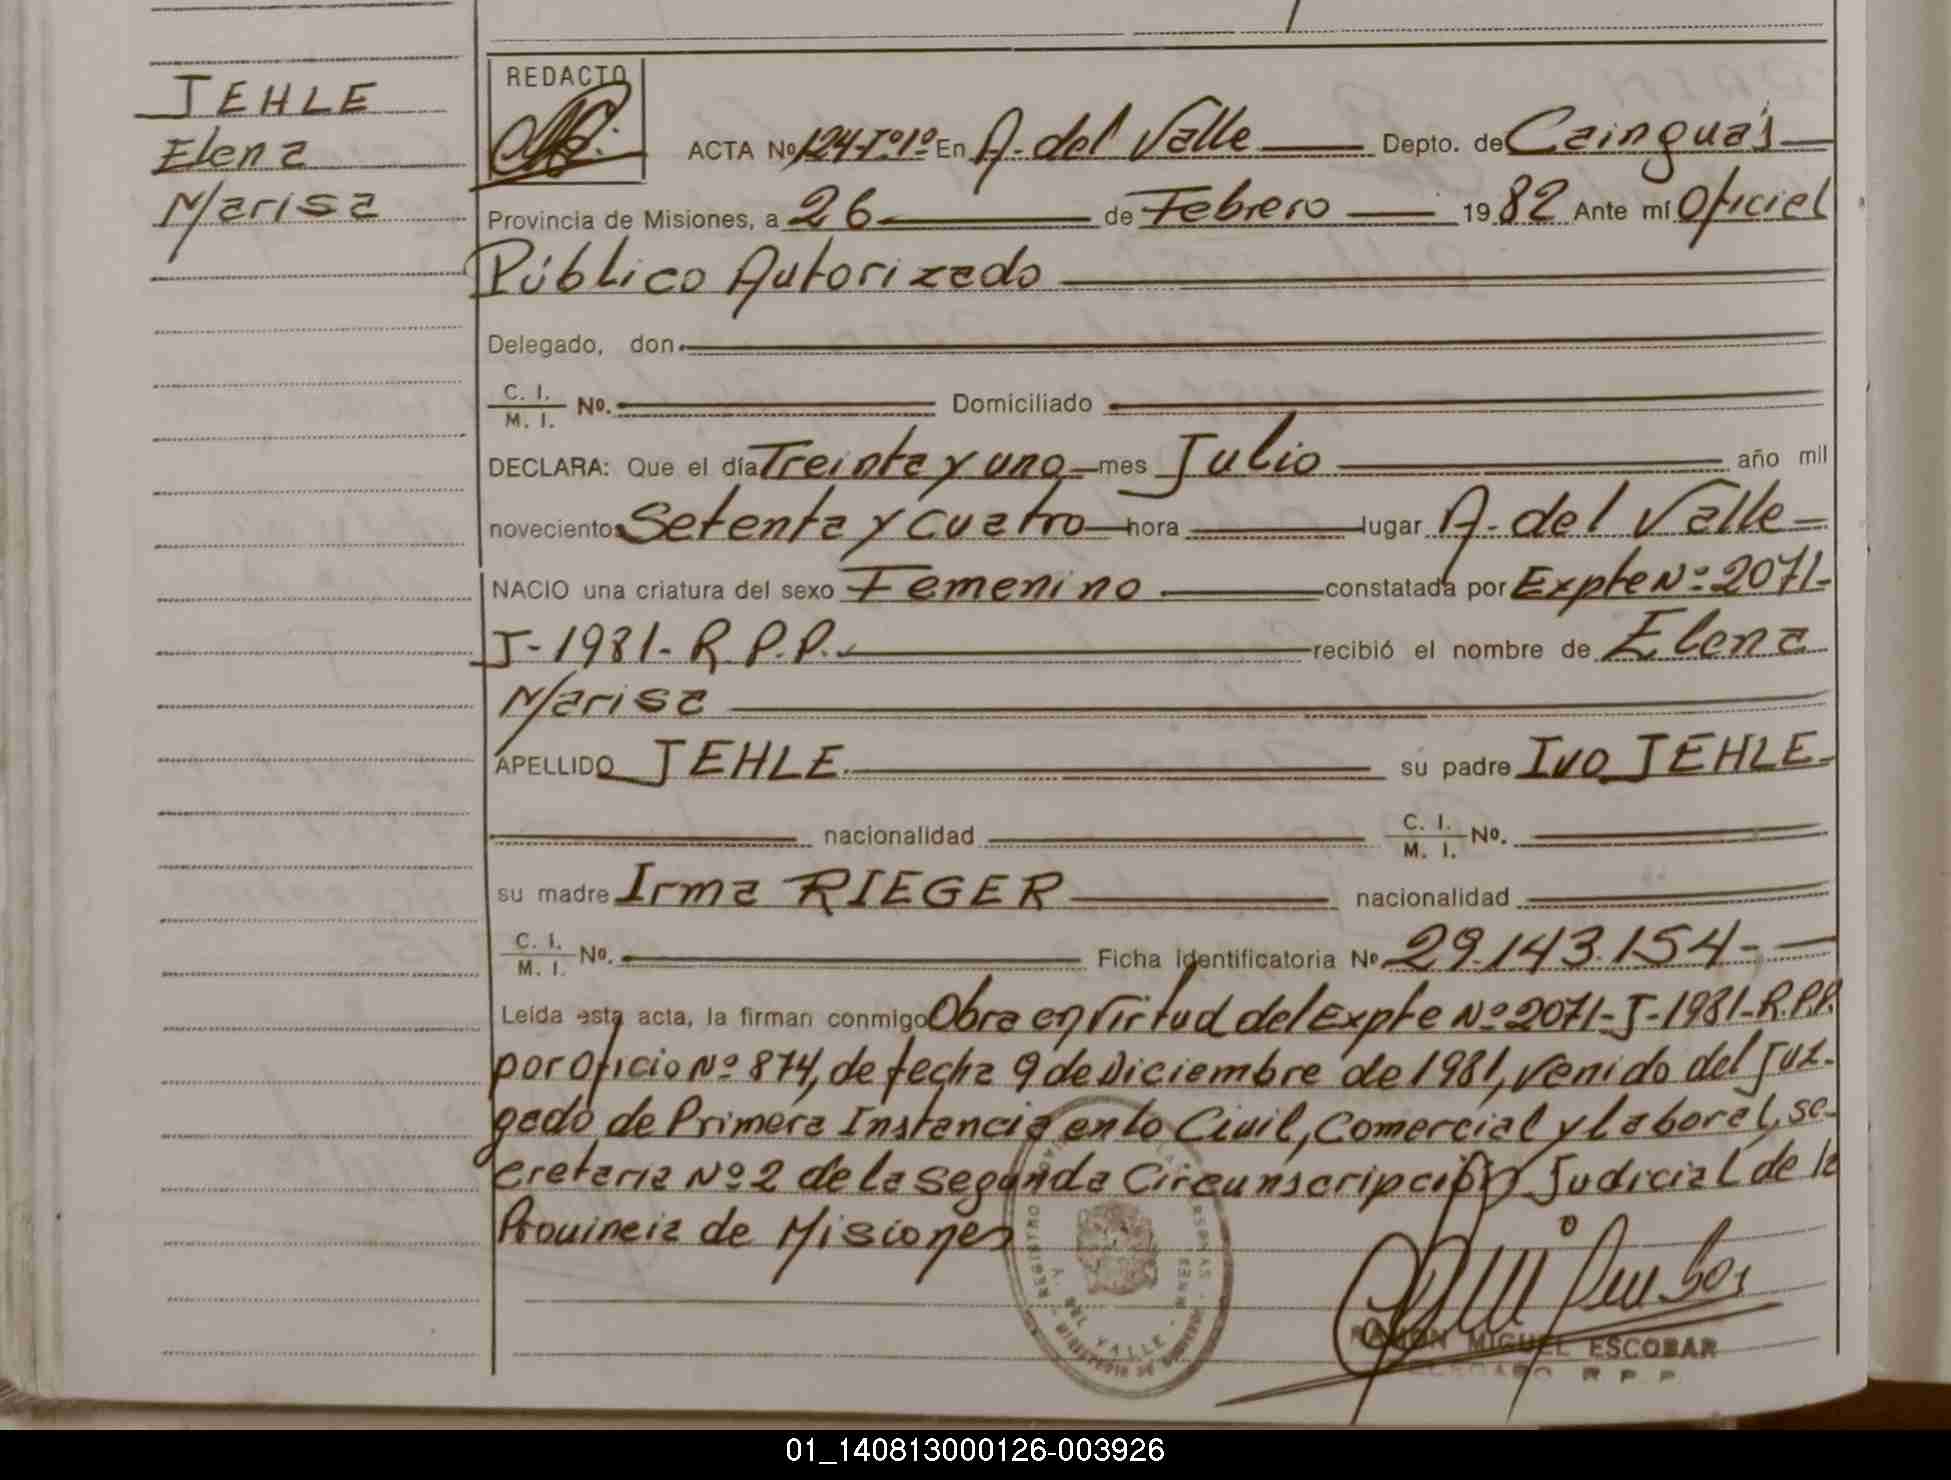 JEHLE
Elena
Marisa
REDACTO
ACTA Nº 124-Tº1º En A. del Valle Depto. de Cainguás
Provincia de Misiones, a 26 de Febrero 1982 Ante mí Oficial
Público Autorizado
Delegado, don
C. I.
M. I. Nº. Domiciliado
DECLARA: Que el día Treinta y uno mes Julio año mil
noveciento Setenta y cuatro hora lugar A. del Valle
NACIO una criatura del sexo Femenino constatada por Expte Nº 2071-
J-1981-R.P.P. recibió el nombre de Elena
Marisa
APELLIDO JEHLE su padre Ivo JEHLE
nacionalidad C. I.
M. I. Nº.
su madre Irma RIEGER nacionalidad
C. I.
M. I. Nº. Ficha Identificatoria Nº 29.143.154-
Leída esta acta, la firman conmigo Obra en Virtud del Expte Nº 2071-J-1981-R.P.P.
por Oficio Nº 874, de fecha 9 de Diciembre de 1981, venido del Juz-
gado de Primera Instancia en lo Civil, Comercial y laboral, se-
cretaria Nº 2 de la Segunda Circunscripción Judicial de la
Provincia de Misiones
RAMON MIGUEL ESCOBAR
R. P. P.
01_140813000126-003926